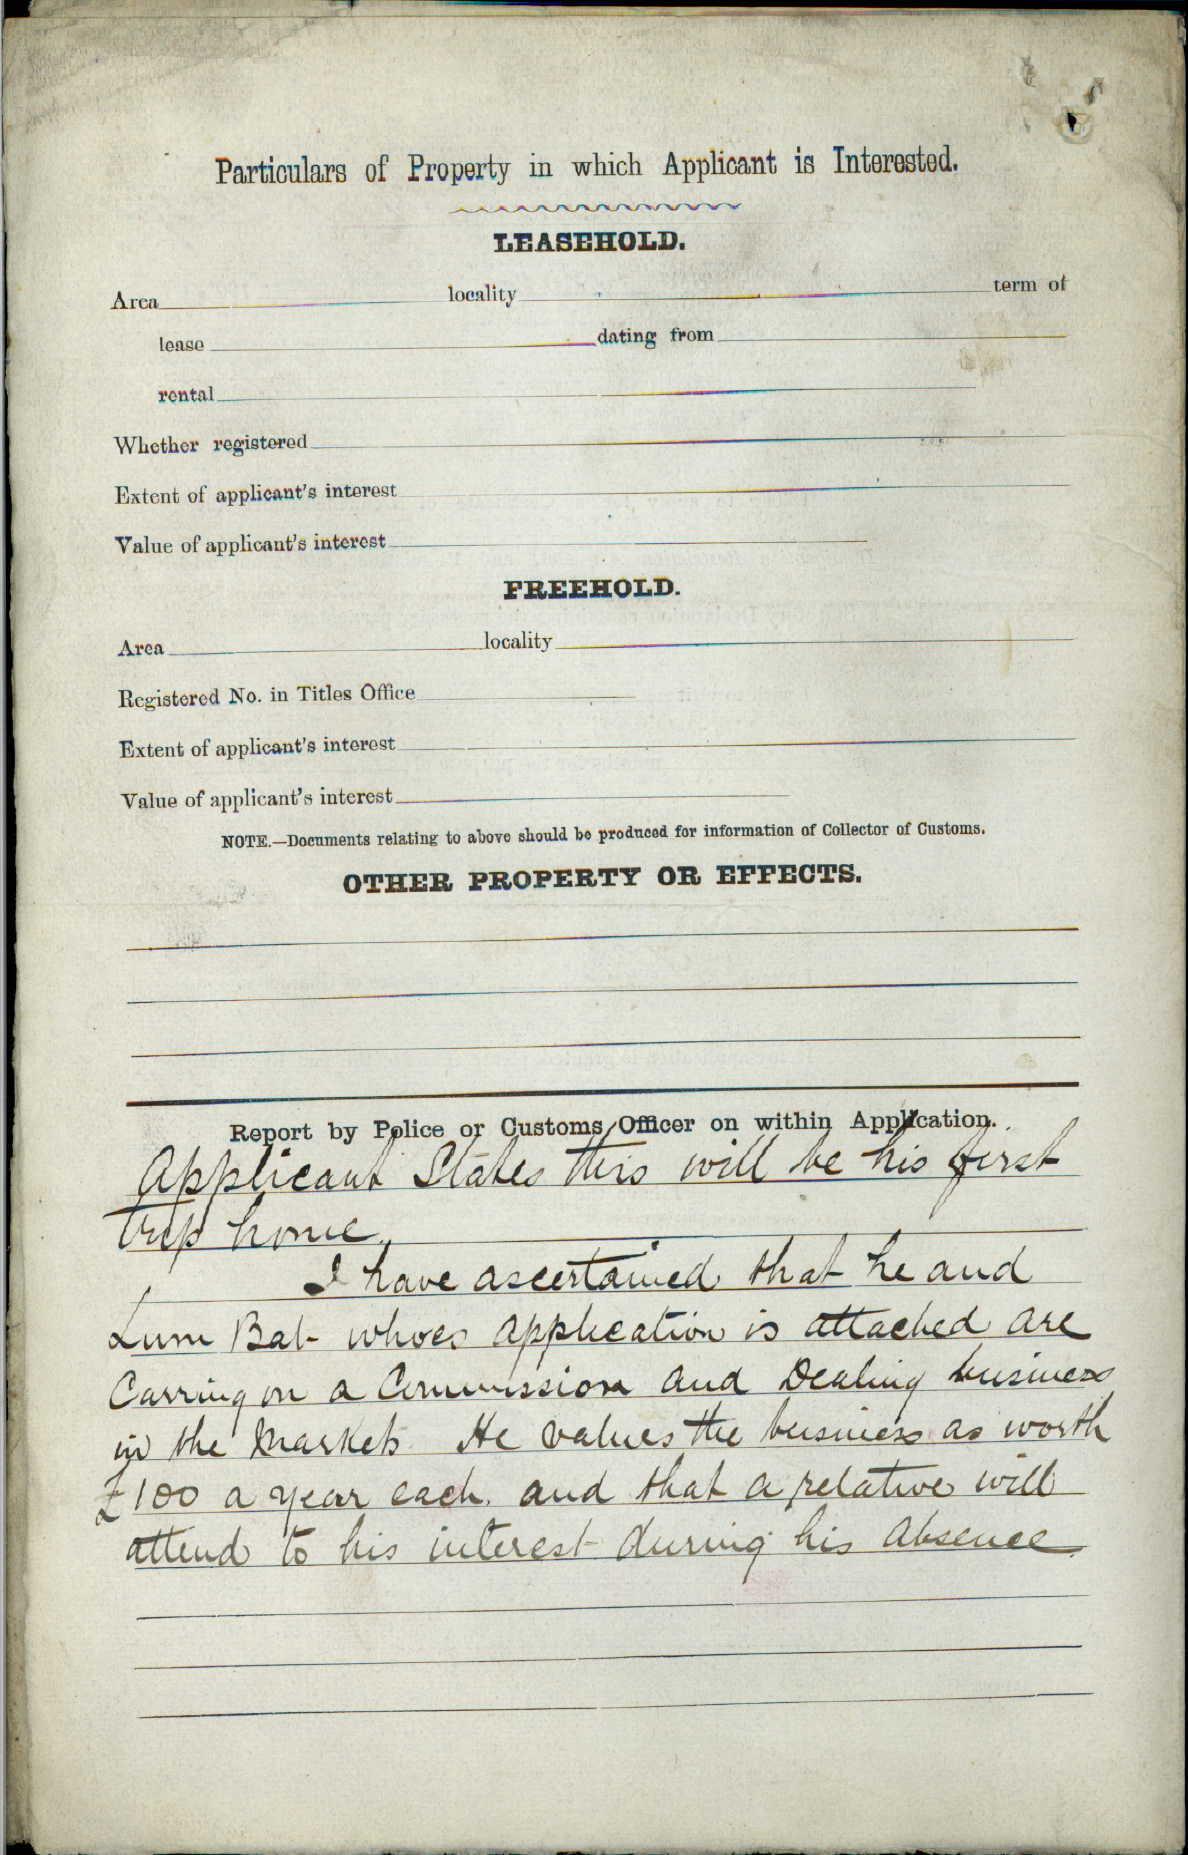 Particulars of Property in which Applicant is Interested.
LEASEHOLD.
Area locality term of
lease dating from
rental
Whether registered
Extent of applicant's interest
Value of applicant's interest
FREEHOLD.
Area locality
Registered No. in Titles Office
Extent of applicant's interest
Value of applicant's interest
NOTE.—Documents relating to above should be produced for information of Collector of Customs.
OTHER PROPERTY OR EFFECTS.
Report by Police or Customs Officer on within Application.
Applicant States this will be his first
trip home.
I have ascertained that he and
Lum Bat whoes application is attached are
Carring on a Commission and Dealing business
in the Markets He values the business as worth
£100 a year each. and that a relative will
attend to his interest during his absence